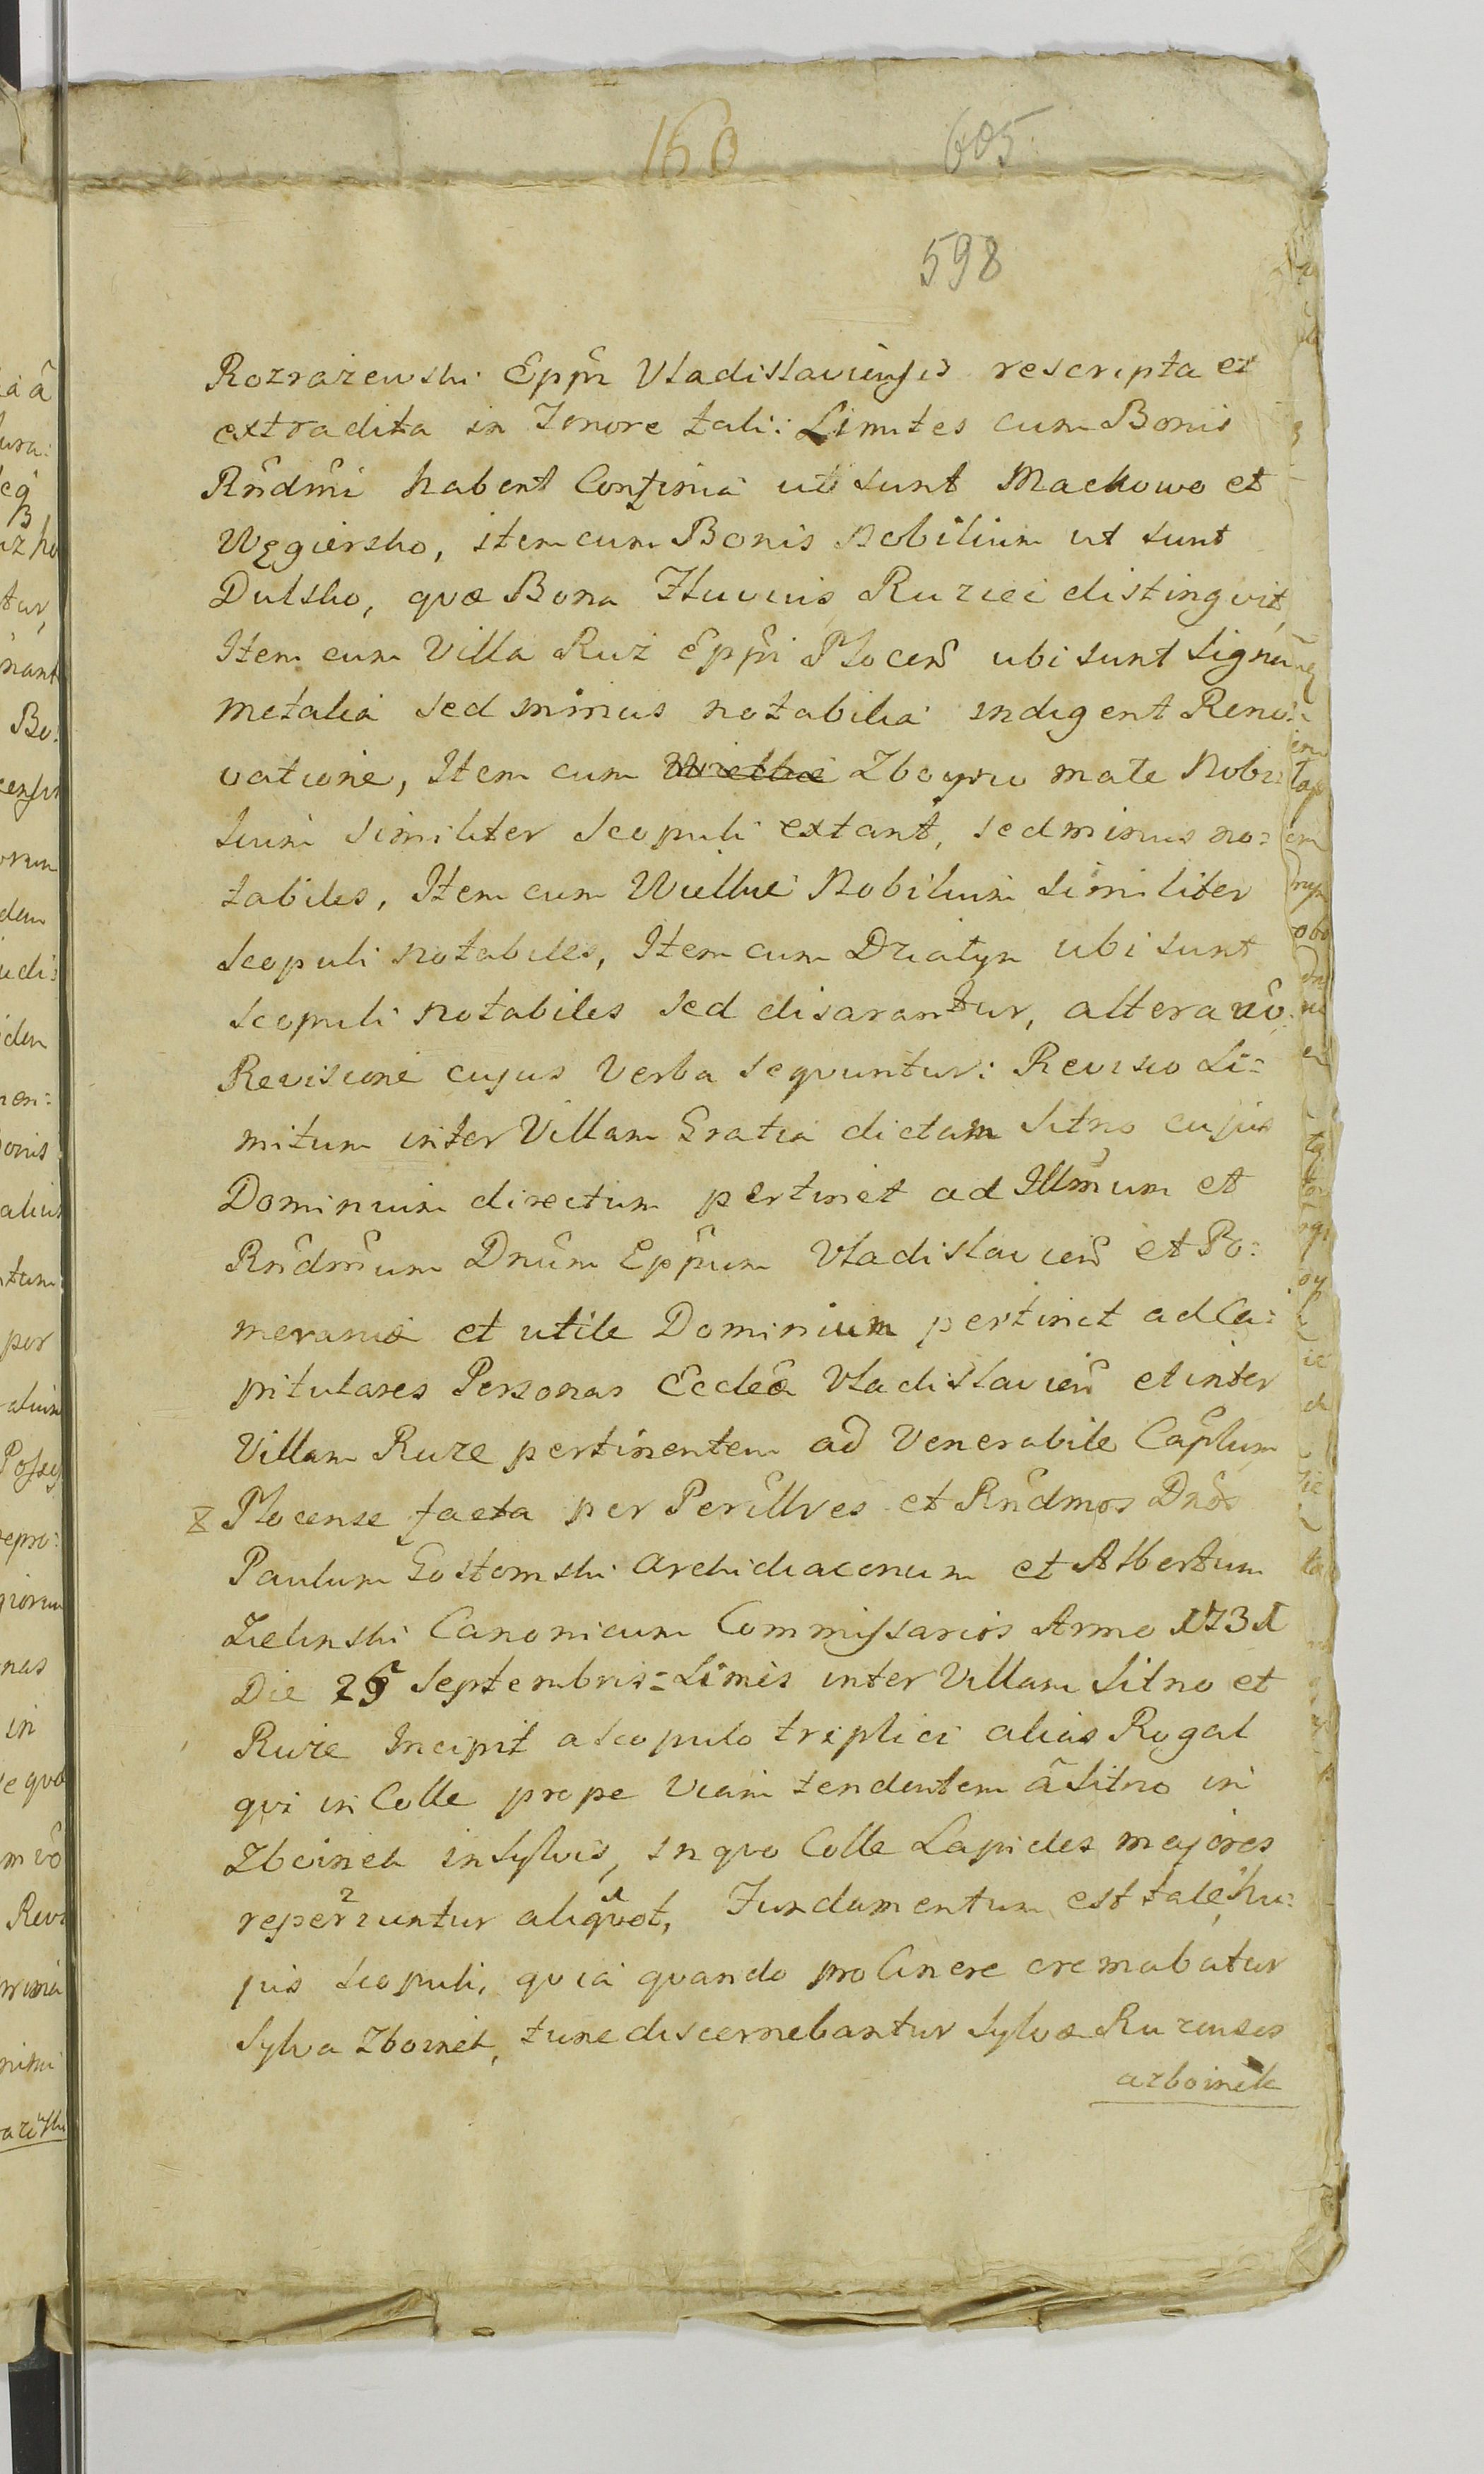 160 605.
598
Rozrażewski Epp̃i Vladislaviensis rescripta et
extradita in Tenore tali: Limites cum Bonis
Rñdmĩ habent Confinia uti sunt Mackowo et
Węgiersko, item cum Bonis Nobilium ut sunt
Dulsko, quæ Bona Fluvius Ruziec distingvit,
Item cum Villa Ruż Epp̃i Plocen̄ ubi sunt Signa
metalia sed minus notabilia indigent Reno:
vatione, Item cum Wielkie Zboyno małe Nobi:
lium similiter Scopuli extant, sed minus no:
tabiles, Item cum Wielkie Nobilium similiter
Scopuli notabiles, Item cum Dziatyn ubi sunt
Scopuli notabiles sed disarantur, altera võ
Revisione cujus Verba sequuntur: Revisio Li:
mitum inter Villam Gratia dictam Sitno cujus
Dominium directum pertinet ad Illm̃um et
Rñdm̃um Dnũm Epp̃um Vladislavien̄ et Po:
meraniæ et utile Dominium pertinet ad Ca:
pitulares Personas Ecclẽæ Vladislavien̄ et inter
Villam Ruze pertinentem ad Venerabile Cap̃lum
Plocense facta per Perillres et Rñdmos Dnõs
Paulum Gostomski Archidiaconum et Albertum
Zielinski Canonicum Commissarios Anno 1731
Die 25 Septembris: Limes inter Villam Sitno et
Ruże Incipit a Scopulo triplici alias Rogal
qvi in Colle prope Viam tendentem â Sitno in
Zboinek in Sylvis, in quo Colle Lapides majores
reperiuntur aliqvot, Fundamentum est tale hu:
jus Scopuli, qvia quando pro Cinere cremabatur
Sylva Zboinek, tunc discernebantur Sylvæ Ruzenses
a Zboinek